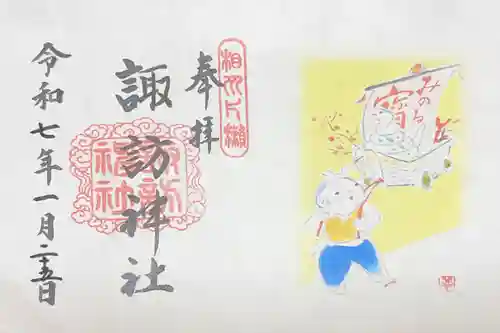 奉拝
相州片瀬
諏訪神社
諏訪神社
令和七年一月二十五日
みのる